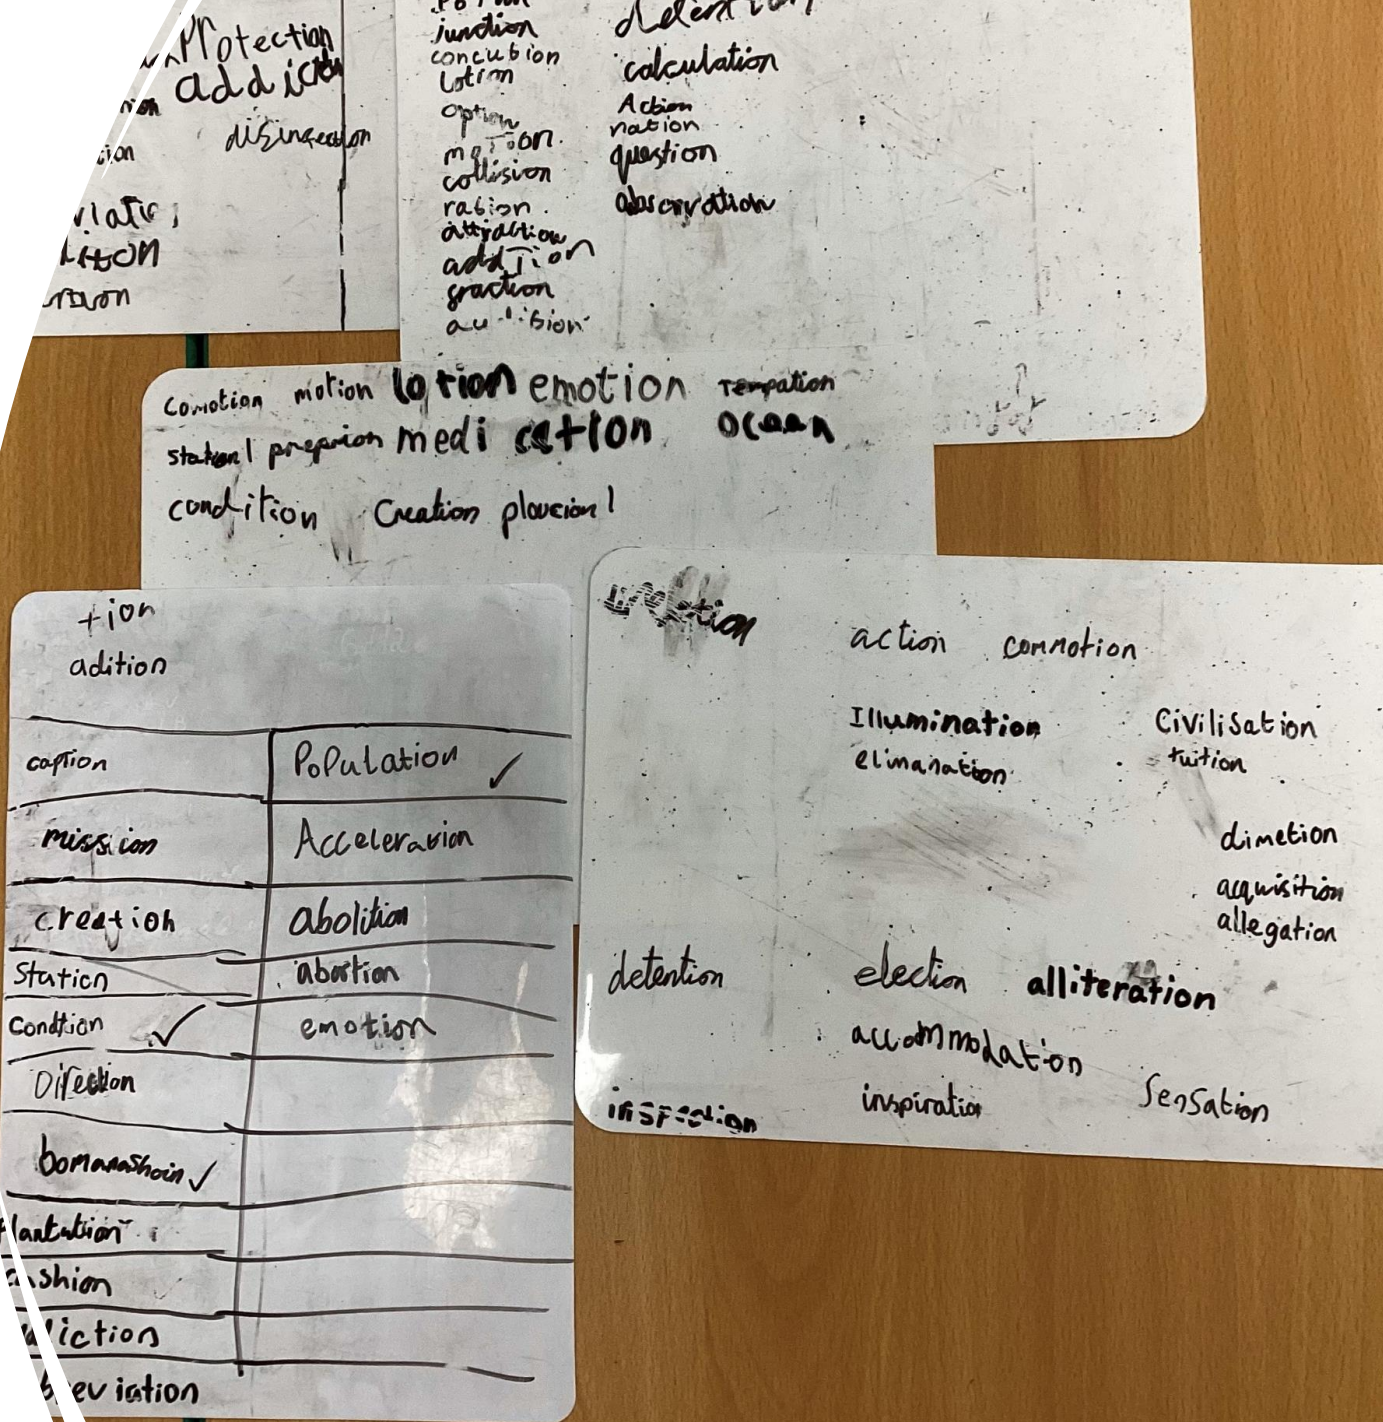 Protection
addictio
disinfection
junction
concubion
lotion
option
motion
collision
ration
attraction
addTion
fraction
detention
calculation
Action
nation
question
abscrvation
comotion motion lotion emotion Tempation
station preprion medication Ocean
condition Creation ploucion
tion
adition
caption PoPulation
mission Acceleration
creation abolition
Station abortion
Condtion emotion
Direction
bomanashoin
lantation
cushion
diction
breviation
action commotion
Illumination Civilisation
elimanation tuition
dimetion
acquisition
allegation
detention election alliteration
accommodation
inspection inspiration Sensation